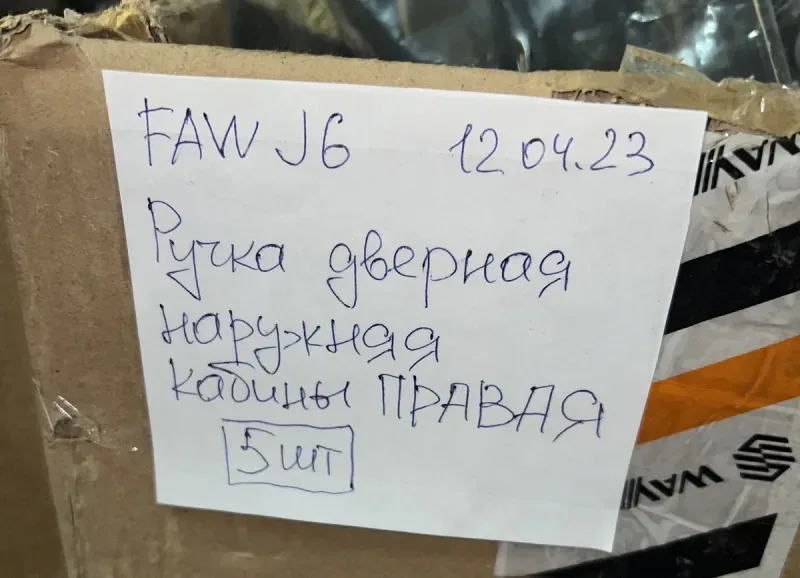 FAW J6 12.04.23
Ручка дверная
наружная
кабины ПРАВАЯ
5 шт